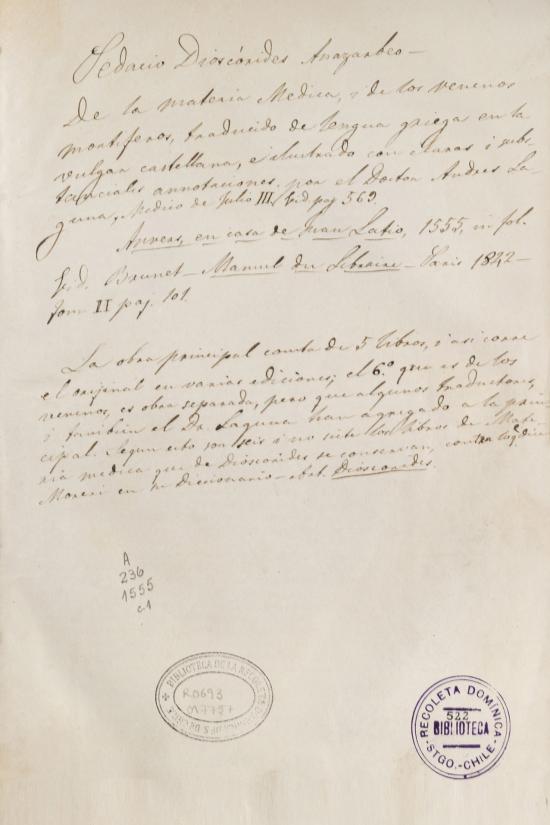 Pedacio Dioscórides Anazarbeo—
De la materia Medica, i de los venenos
mortiferos, traducido de lengua griega en la
vulgar castellana, e ilustrado con claras i subs-
tanciales annotaciones, por el Doctor Andres La-
guna, Medico de Julio III. paj 569.
Anvers, en casa de Juan Latio, 1555, in fol.
Brunet—Manuel du Libraire—Paris 1842—
tom II paj. 101.
La obra principal consta de 5 libros, i asi corre
el orijinal en varias ediciones; el 6.º que es de los
venenos, es obra separada, pero que algunos traductores,
i tambien el Dr. Laguna han agregado a la prin-
cipal. Segun esto son seis i no siete los libros de Mate-
ria medica que de Dioscórides se conservan, contra lo q. dice
Moreri en su Diccionario—abrt. Dioscorides.
A
236
1555
c1
BIBLIOTECA DE LA RECOLETA
R0693
RECOLETA DOMÍNICA
522
BIBLIOTECA
-STGO.-CHILE-